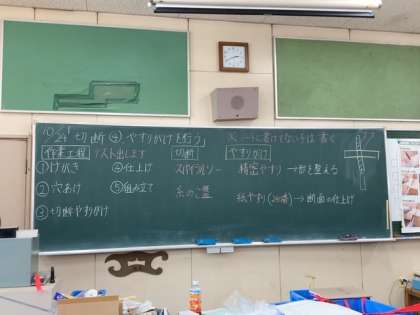 切断④、やすりがけを行う」
※ノートに書けてない子は書く
作業工程
テスト出します
切断
やすりがけ
①けがき
④仕上げ
スパイラルソー
精密やすり→形を整える
②穴あけ
⑤組み立て
糸のこ盤
紙やすり(240番)→断面の仕上げ
③切断やすりがけ